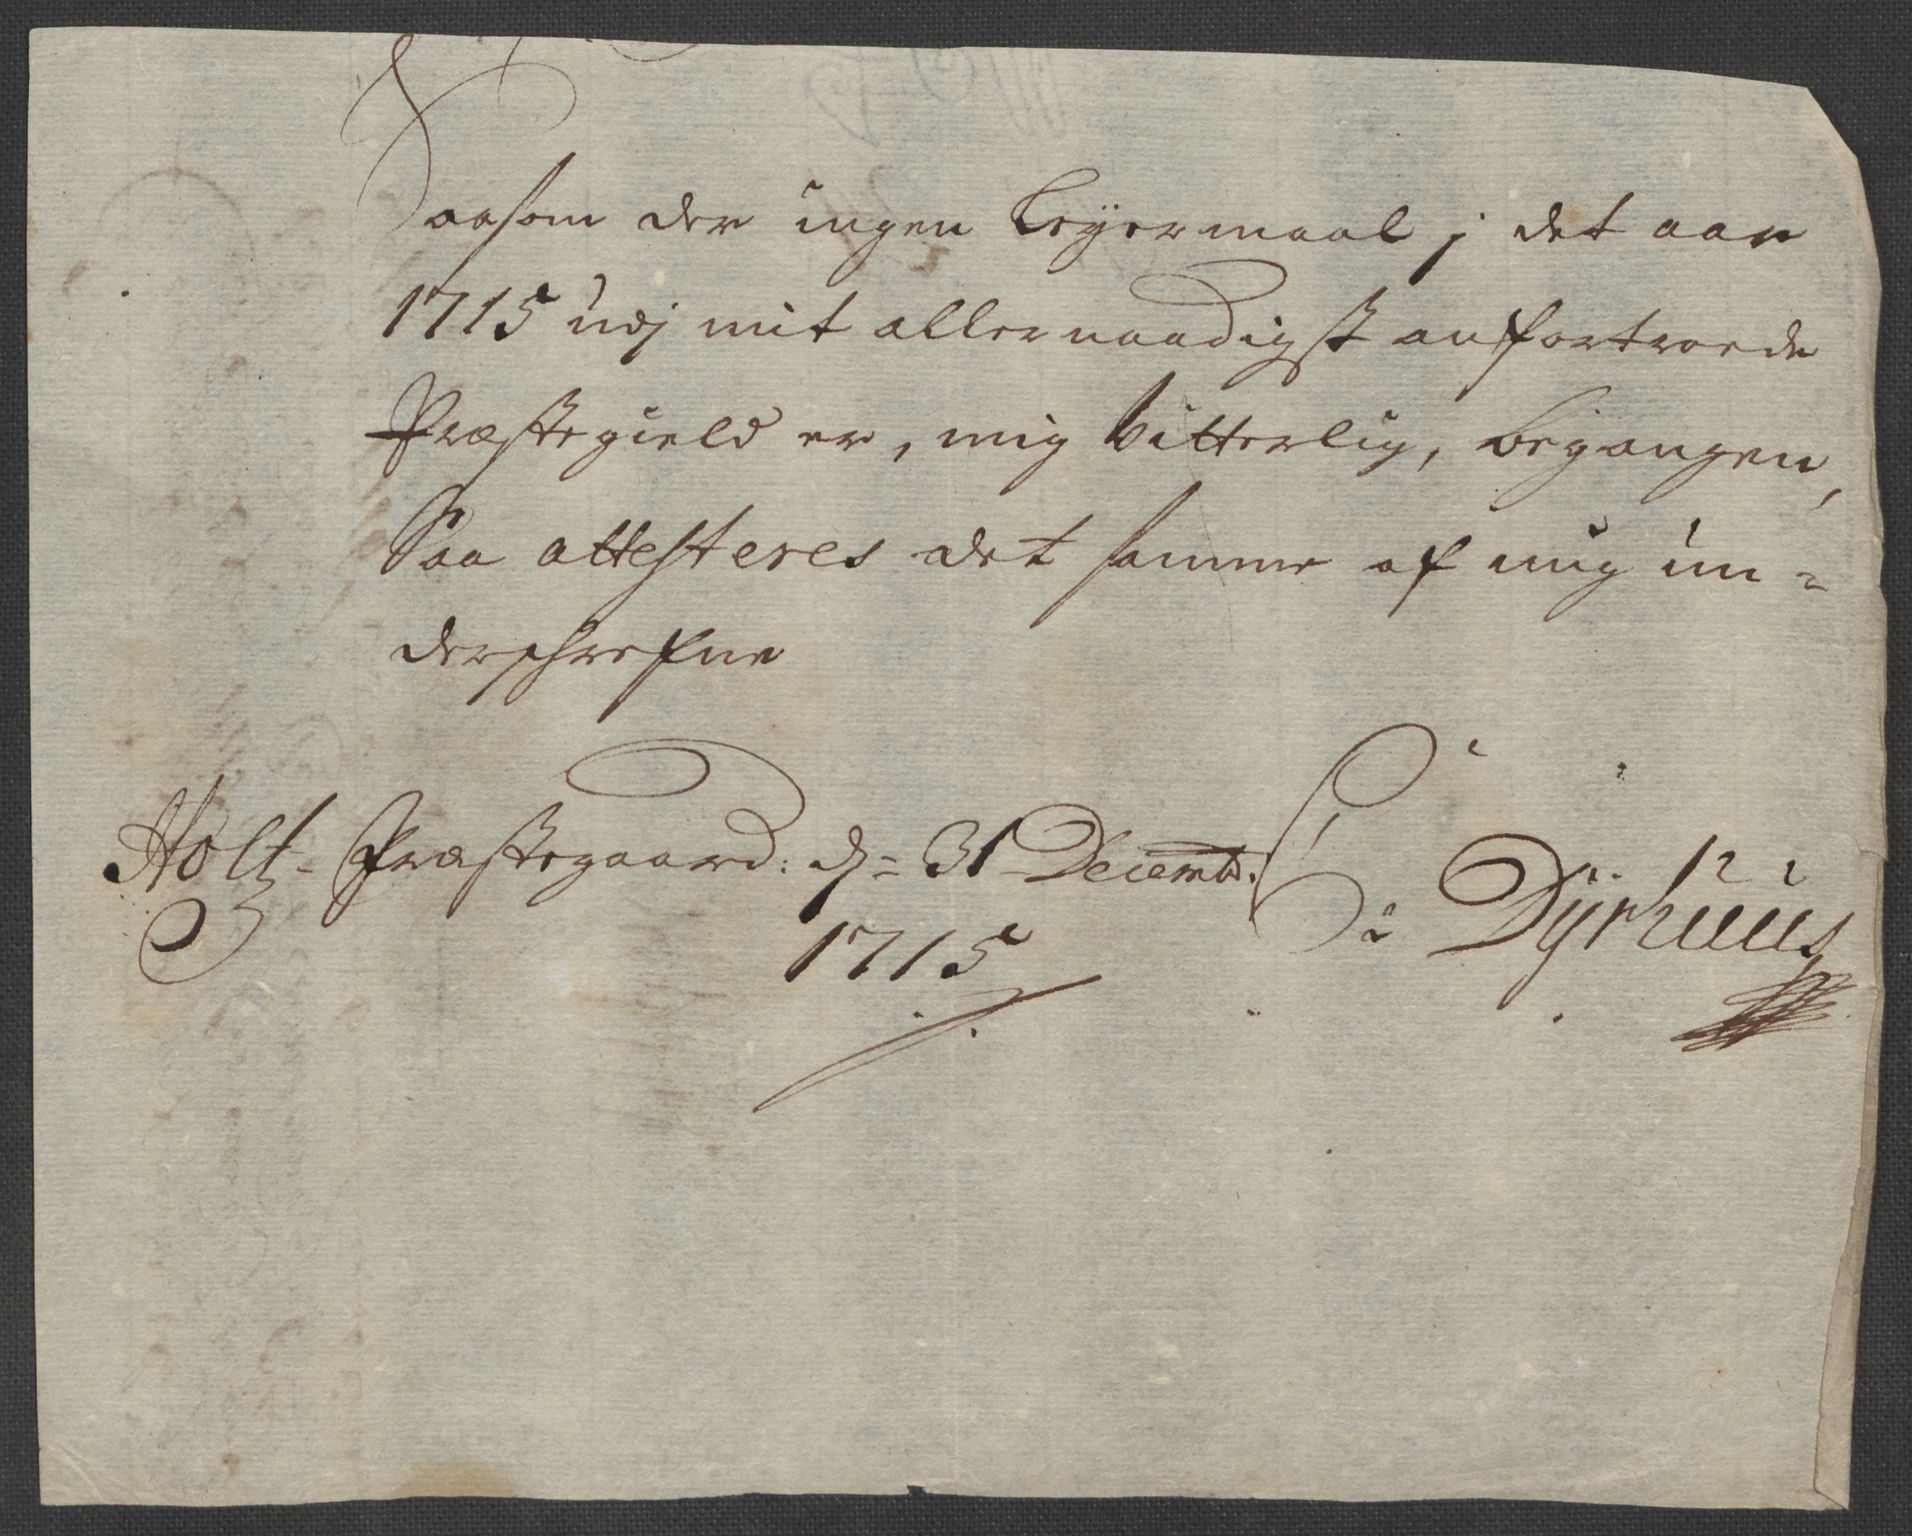 Saasom der ingen Leÿermaal j det aar
1715 udj mit allernaadigst anfortroede
Præstegield er, mig vitterlig, begangen,
Saa attesteres det samme af mig un=
derschrefne
Holt- Præstegaard: d = 31 Decemb.
1715
Dÿrhuus